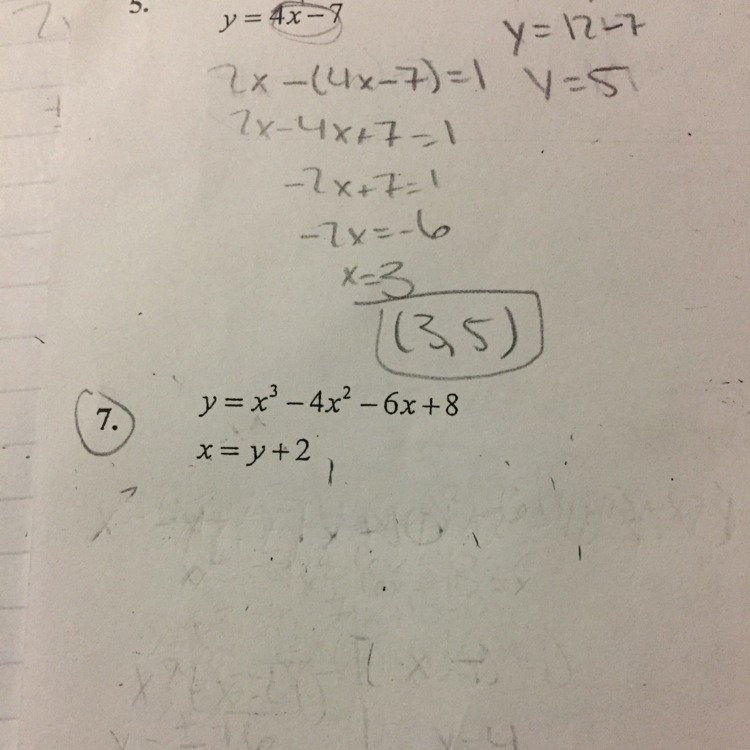 5.
y = 4x − 7
y = 12 − 7
2x − (4x − 7) = 1
y = 5
2x − 4x + 7 = 1
−2x + 7 = 1
−2x = −6
x = 3
(3, 5)
7.
y = x³ − 4x² − 6x + 8
x = y + 2